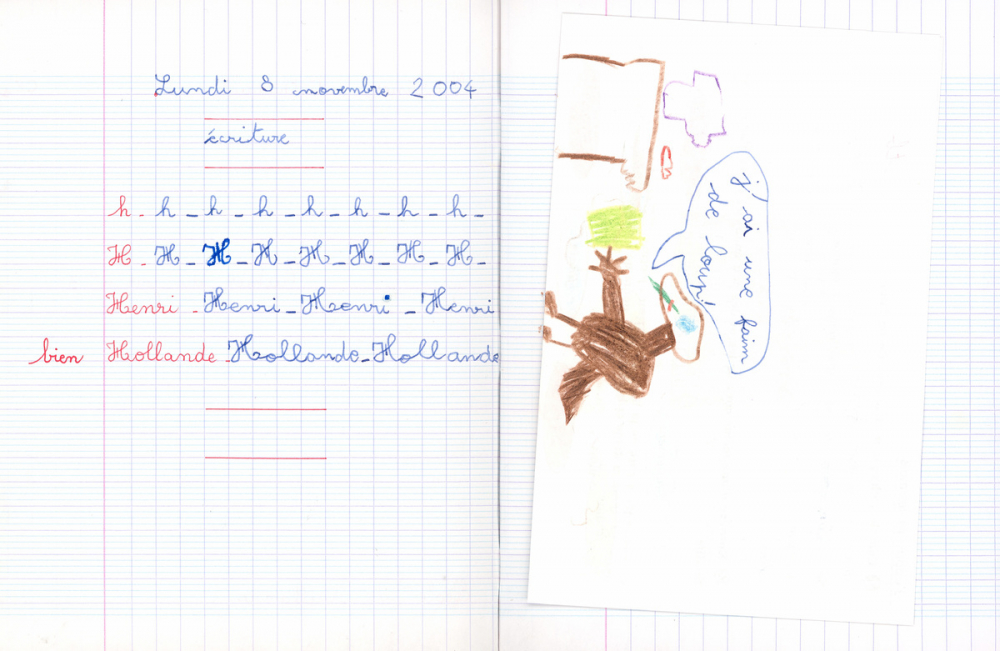 Lundi 8 novembre 2004
écriture
h - h - h - h - h - h - h - h -
H - H - H - H - H - H - H - H -
Henri - Henri - Henri - Henri
bien Hollande Hollande - Hollande
j'ai une faim
de loup!